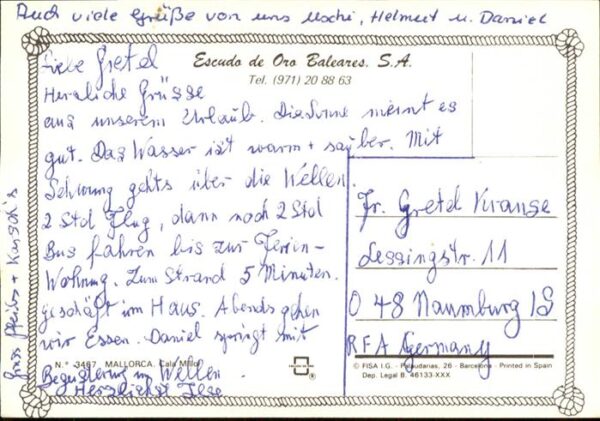 Auch viele Grüße von uns Uschi, Helmut u. Daniel
Escudo de Oro Baleares. S.A.
Tel. (971) 20 88 63
Liebe Gretel
Herzliche Grüsse
aus unserem Urlaub. Die Sonne meint es
gut. Das Wasser ist warm + sauber. Mit
Schwung gehts über die Wellen.
2 Std Flug, dann noch 2 Std
Bus fahren bis zur Ferien-
Wohnung. Zum Strand 5 Minuten.
geschäft im Haus. Abends gehen
wir Essen. Daniel springt mit
Begeisterung im Wellen.
Herzlichst Ilse
Gruss
Fr. Gretel Krause
Lessingstr. 11
O 48 Naumburg /S
RFA Germany
N.° 3467 MALLORCA. Cala Millor
© FISA I.G. - Palaudarias, 26 - Barcelona - Printed in Spain
Dep. Legal B. 46133-XXX